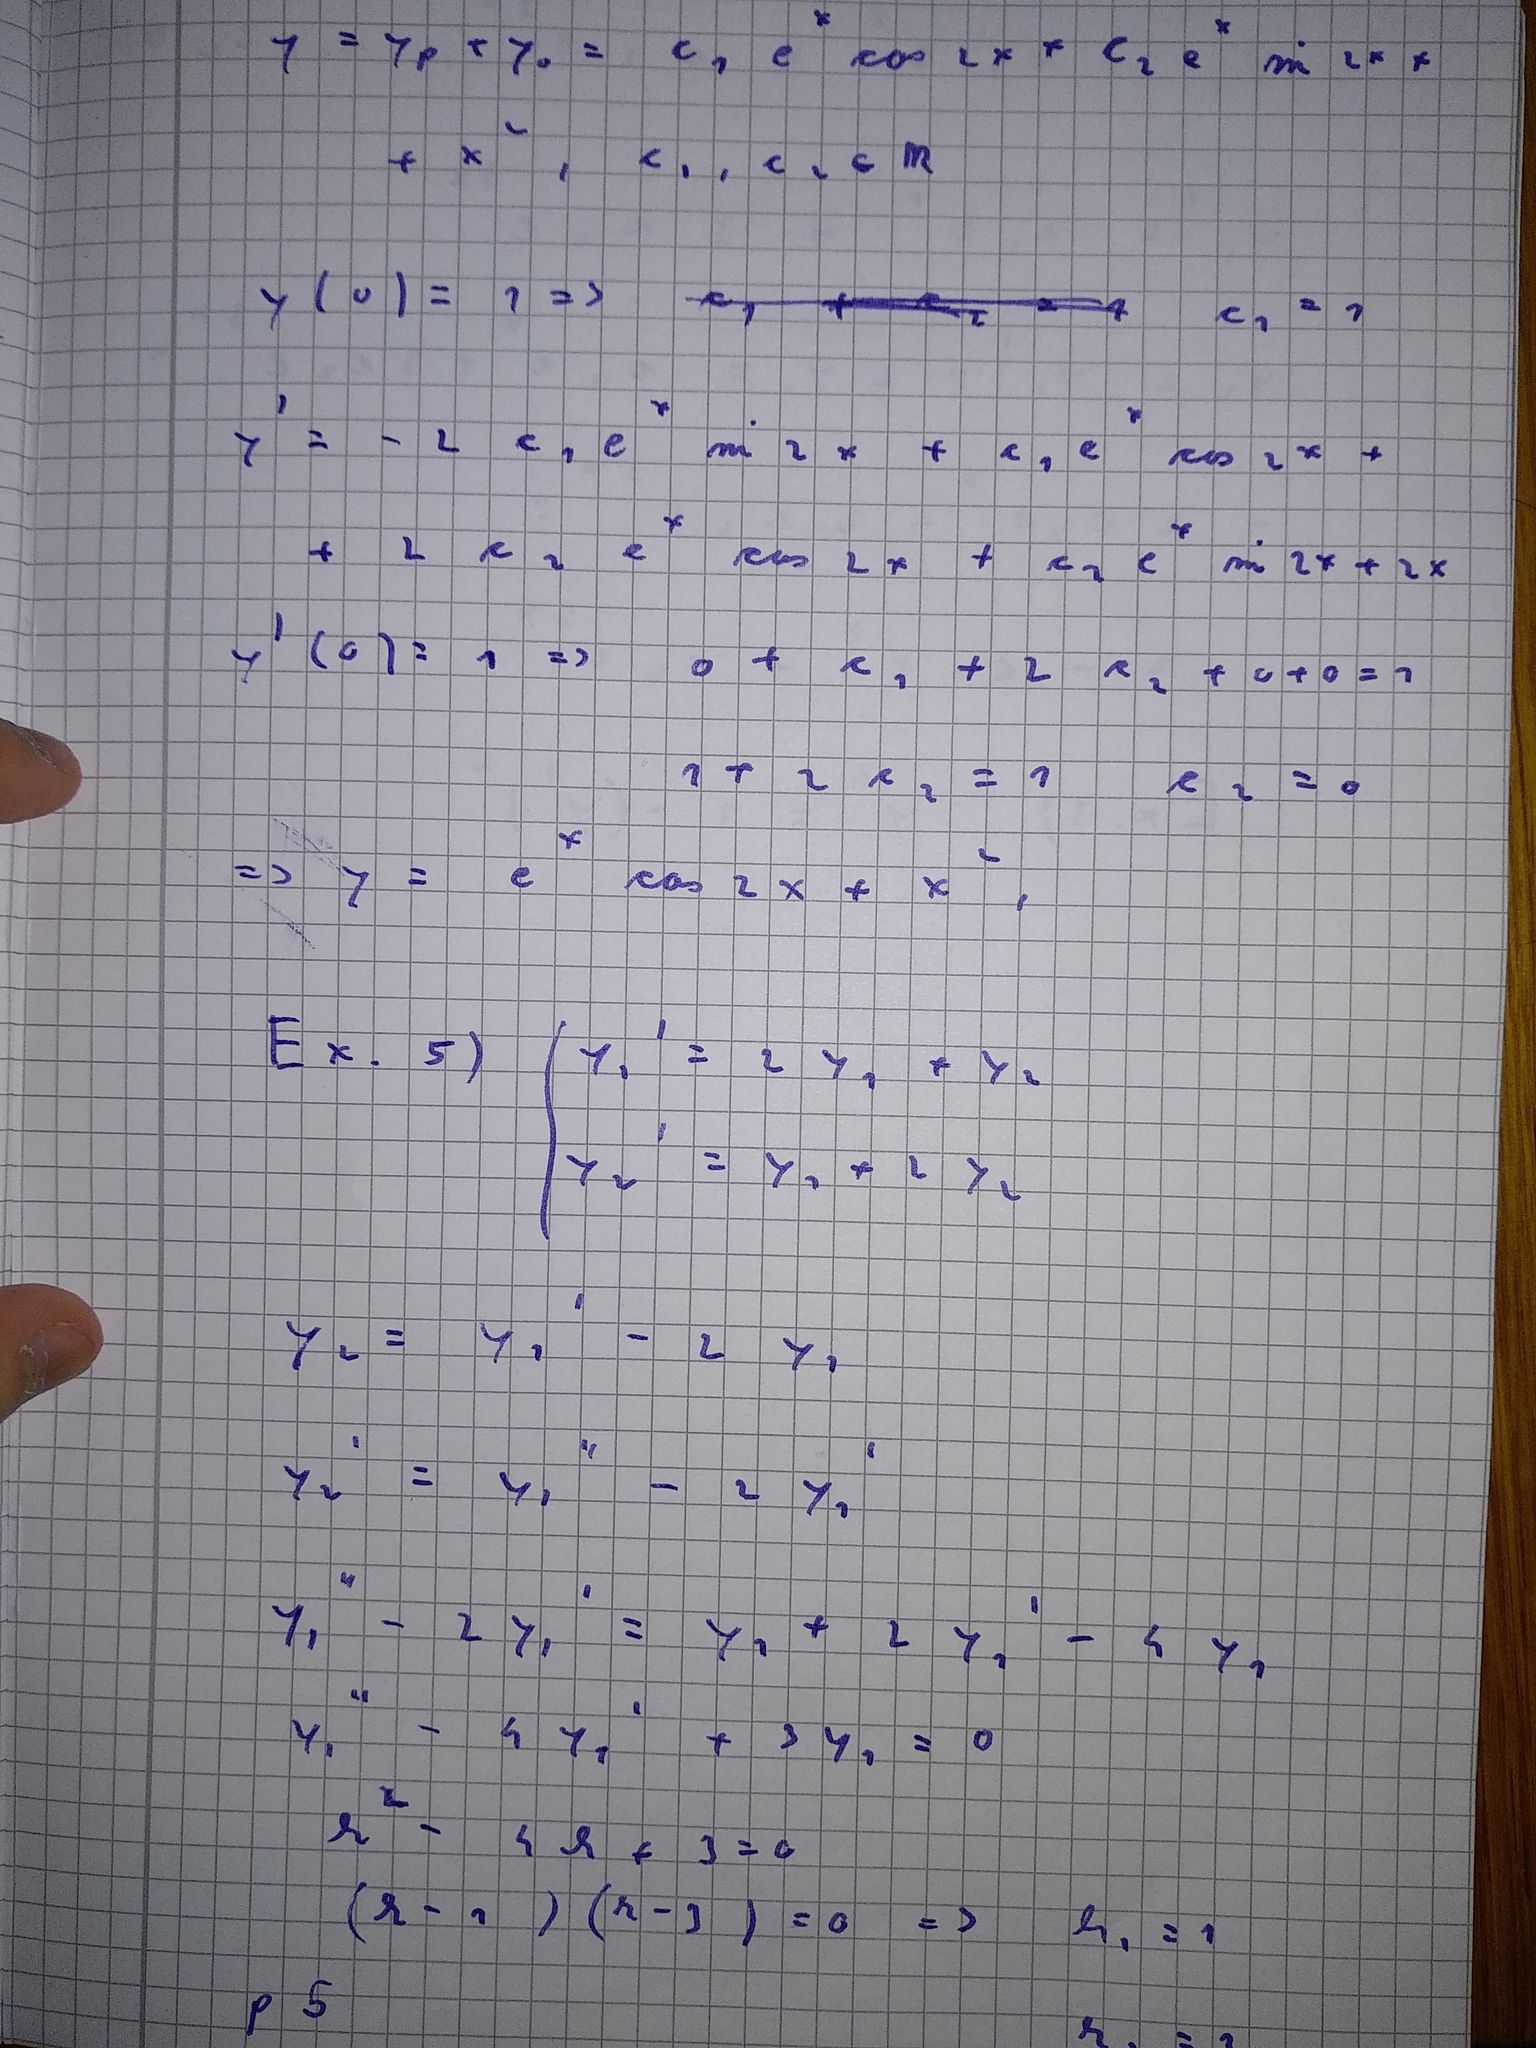 y = yp + y0 = c1 e^x cos 2x + C2 e^x sin 2x +
+ x^2, c1, c2 ∈ R
y(0) = 1 => c1 + c2 = 1 c1 = 1
y' = -2 c1 e^x sin 2x + c1 e^x cos 2x +
+ 2 c2 e^x cos 2x + c2 e^x sin 2x + 2x
y'(0) = 1 => 0 + c1 + 2 c2 + 0 + 0 = 1
1 + 2 c2 = 1 c2 = 0
=> y = e^x cos 2x + x^2,
Ex. 5) { y1' = 2 y1 + y2
y2' = y1 + 2 y2
y2 = y1' - 2 y1
y2' = y1'' - 2 y1'
y1'' - 2 y1' = y1 + 2 y1' - 4 y1
y1'' - 4 y1' + 3 y1 = 0
r^2 - 4 r + 3 = 0
(r - 1) (r - 3) = 0 => r1 = 1
p 5